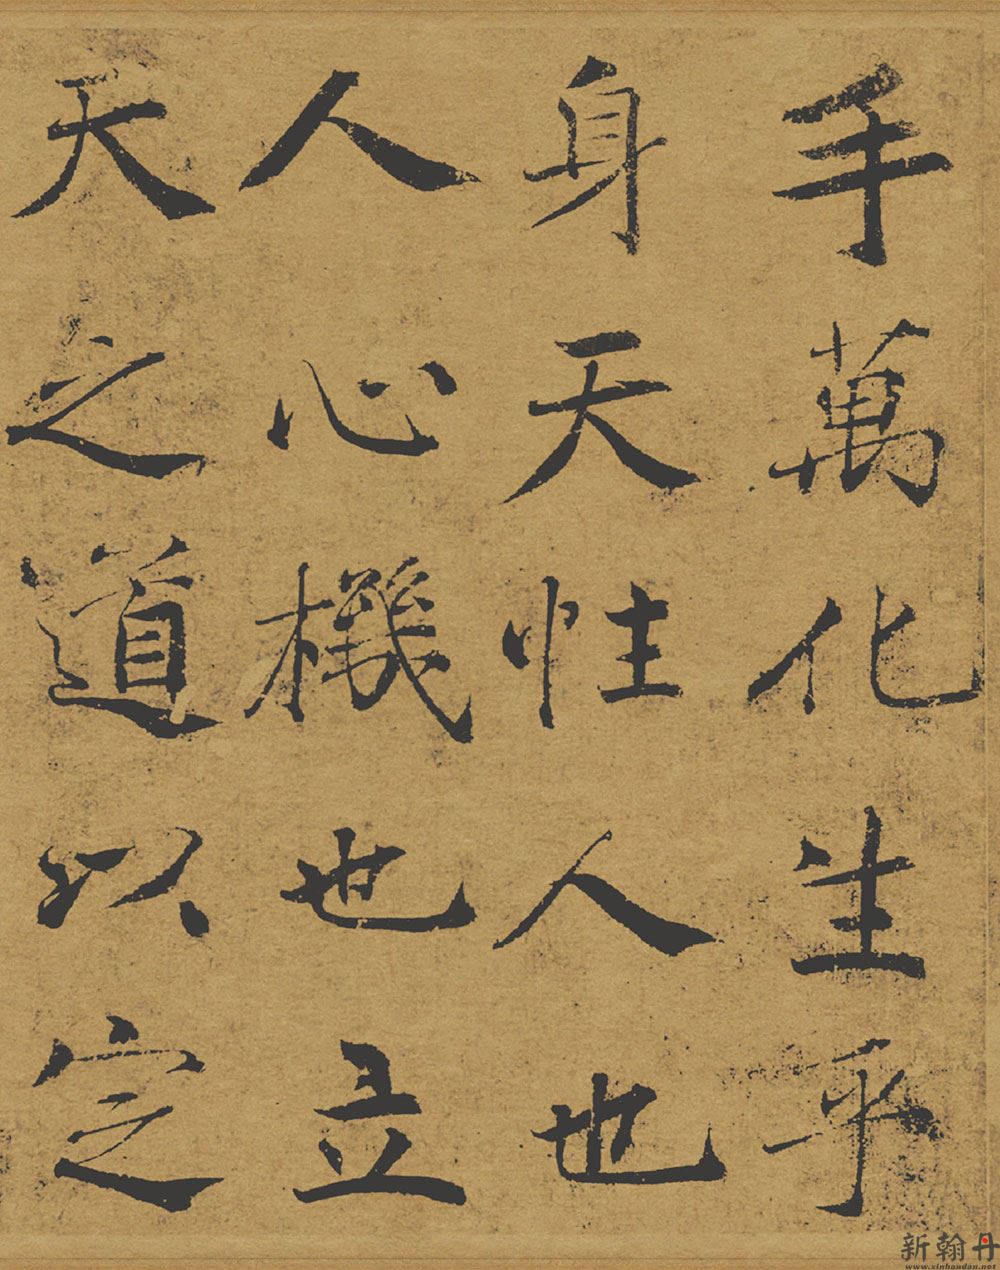 手萬化生乎
身天性人也
人心機也立
天之道以定
新翰丹
www.xinhandan.net